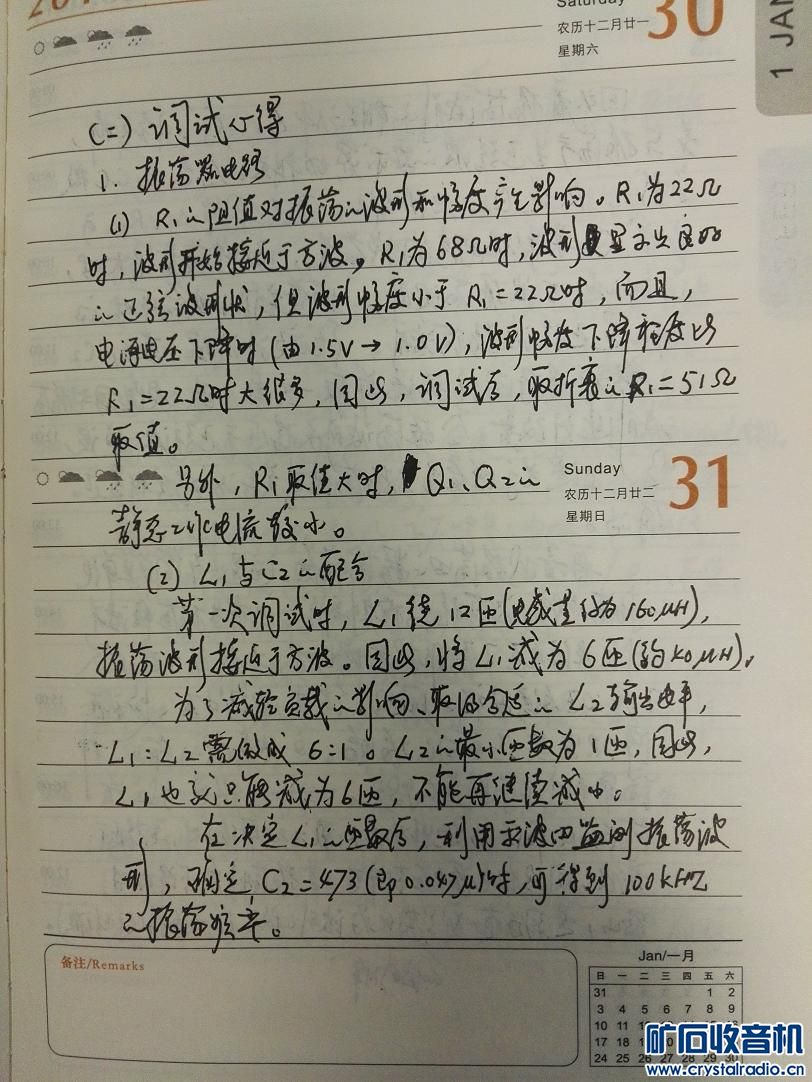 Saturday
30
农历十二月廿一
星期六
1 JAN
(二) 调试心得
1. 振荡器电路
(1) R₁的阻值对振荡的波形和幅度产生影响。R₁为22Ω
时，波形开始接近于方波。R₁为68Ω时，波形显示出良好
的正弦波形状，但波形幅度小于R₁=22Ω时，而且，
电源电压下降时(由1.5V→1.0V)，波形幅度下降程度比
R₁=22Ω时大很多，因此，调试后，取折衷的R₁=51Ω
取值。
Sunday
31
农历十二月廿二
星期日
另外，R₁取值大时，Q₁、Q₂的
静态工作电流较小。
(2) L₁与C₂的配合
第一次调试时，L₁绕12匝(电感量约为160μH)，
振荡波形接近于方波。因此，将L₁减为6匝(约40μH)。
为了减轻负载的影响、取得合适的L₂输出电平，
L₁:L₂需做成6:1。L₂的最小匝数为1匝，因此，
L₁也就只能减为6匝，不能再继续减少。
在决定L₁的匝数后，利用示波器监测振荡波
形，确定C₂=473(即0.047μ)时，可得到100kHz
的振荡频率。
备注/Remarks
Jan/一月
日 一 二 三 四 五 六
31 1 2
3 4 5 6 7 8 9
10 11 12 13 14 15 16
17 18 19 20
24 25 26 27 28 29 30
矿石收音机
www.crystalradio.cn